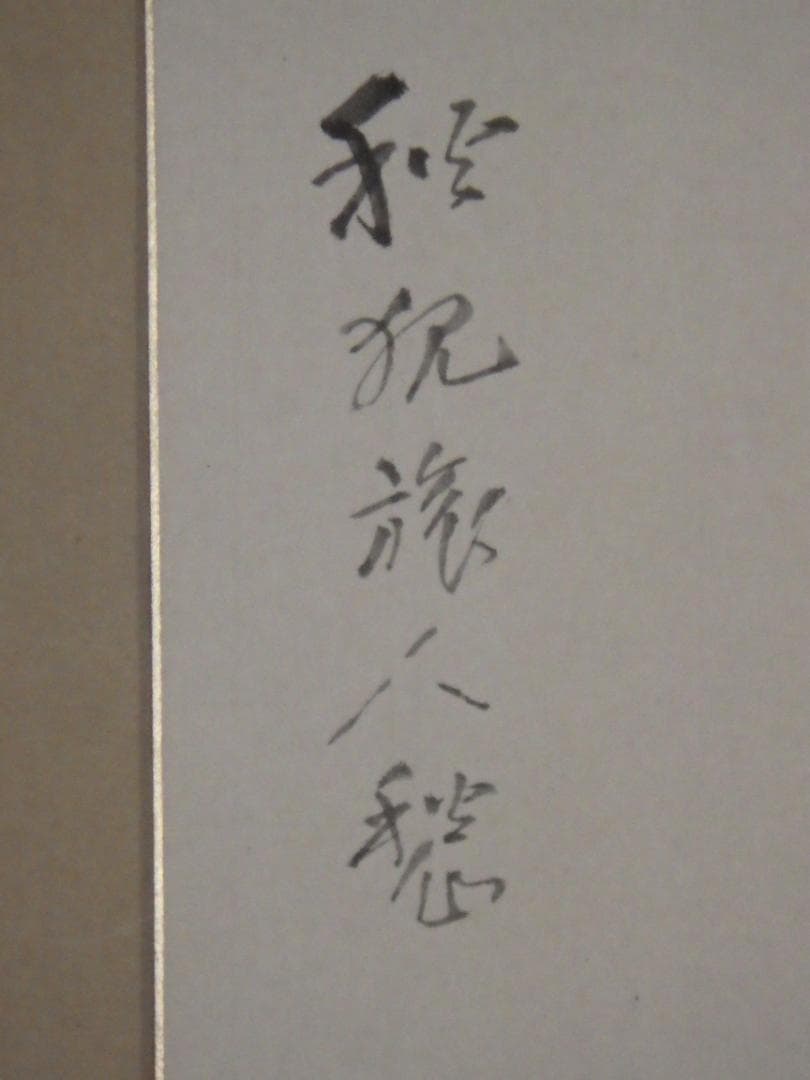 秋旅人愁